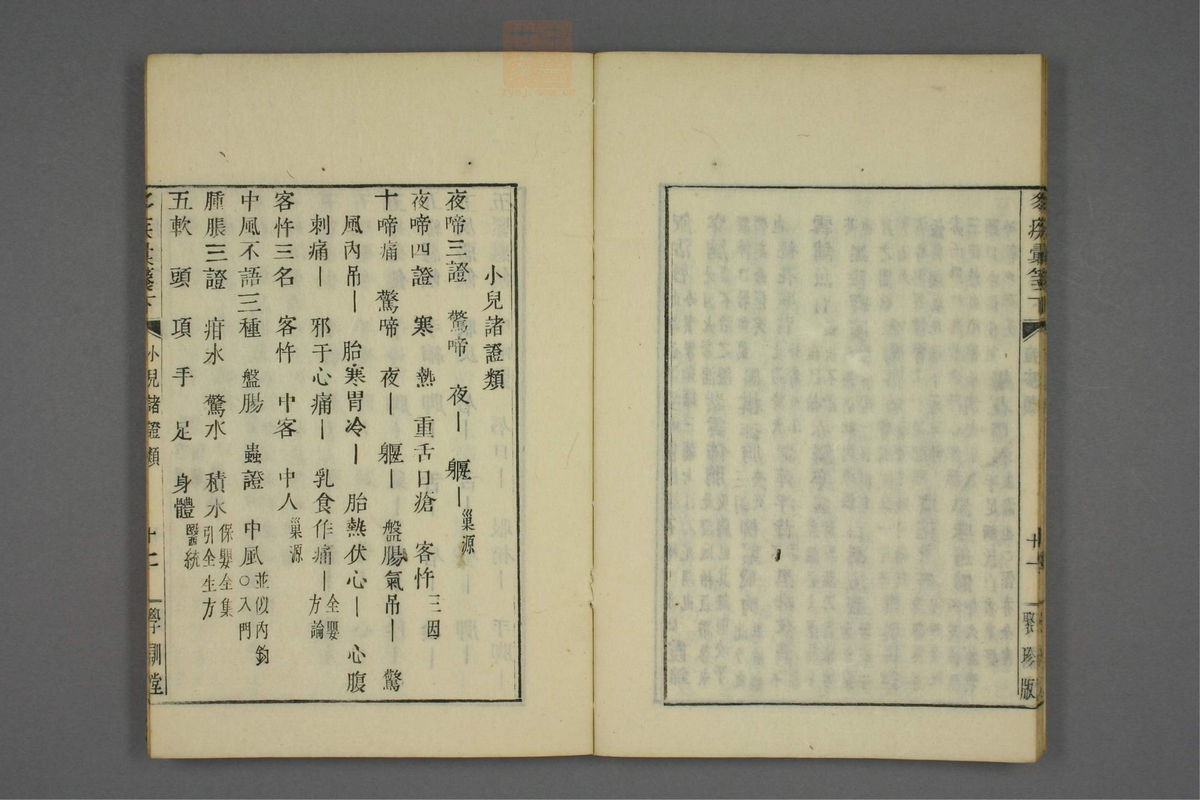 彙箋下
十一
聚珍版
小兒諸證類
夜啼三證 驚啼 夜｜ 躽｜巢源
夜啼四證 寒 熱 重舌口瘡 客忤三因
十啼痛 驚啼 夜｜ 躽｜ 盤腸氣吊｜ 驚
風內吊｜ 胎寒胃冷｜ 胎熱伏心｜ 心腹
刺痛｜ 邪干心痛｜ 乳食作痛｜全嬰方論
客忤三名 客忤 中客 中人巢源
中風不語三種 盤腸 蟲證 中風並仪內鈞○入門
腫脹三證 疳水 驚水 積水保嬰全集引全生方
五軟 頭 項 手 足 身體醫統
小兒諸證類
十二
學訓堂